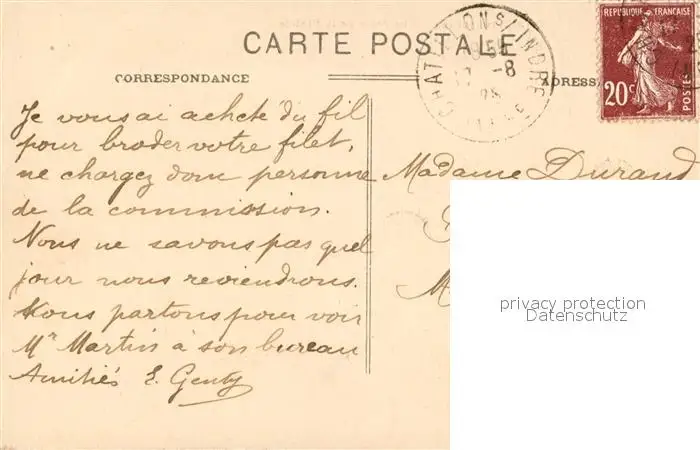 CARTE POSTALE
CORRESPONDANCE
ADRESS
REPUBLIQUE FRANÇAISE
20c
POSTES
CHATILLON S/ INDRE
-8
Je vous ai acheté du fil
pour broder votre filet,
ne chargez donc personne
de la commission.
Nous ne savons pas quel
jour nous reviendrons.
Nous partons pour voir
Mr Martin à son bureau
Amitiés E. Genty
Madame Durand
privacy protection
Datenschutz